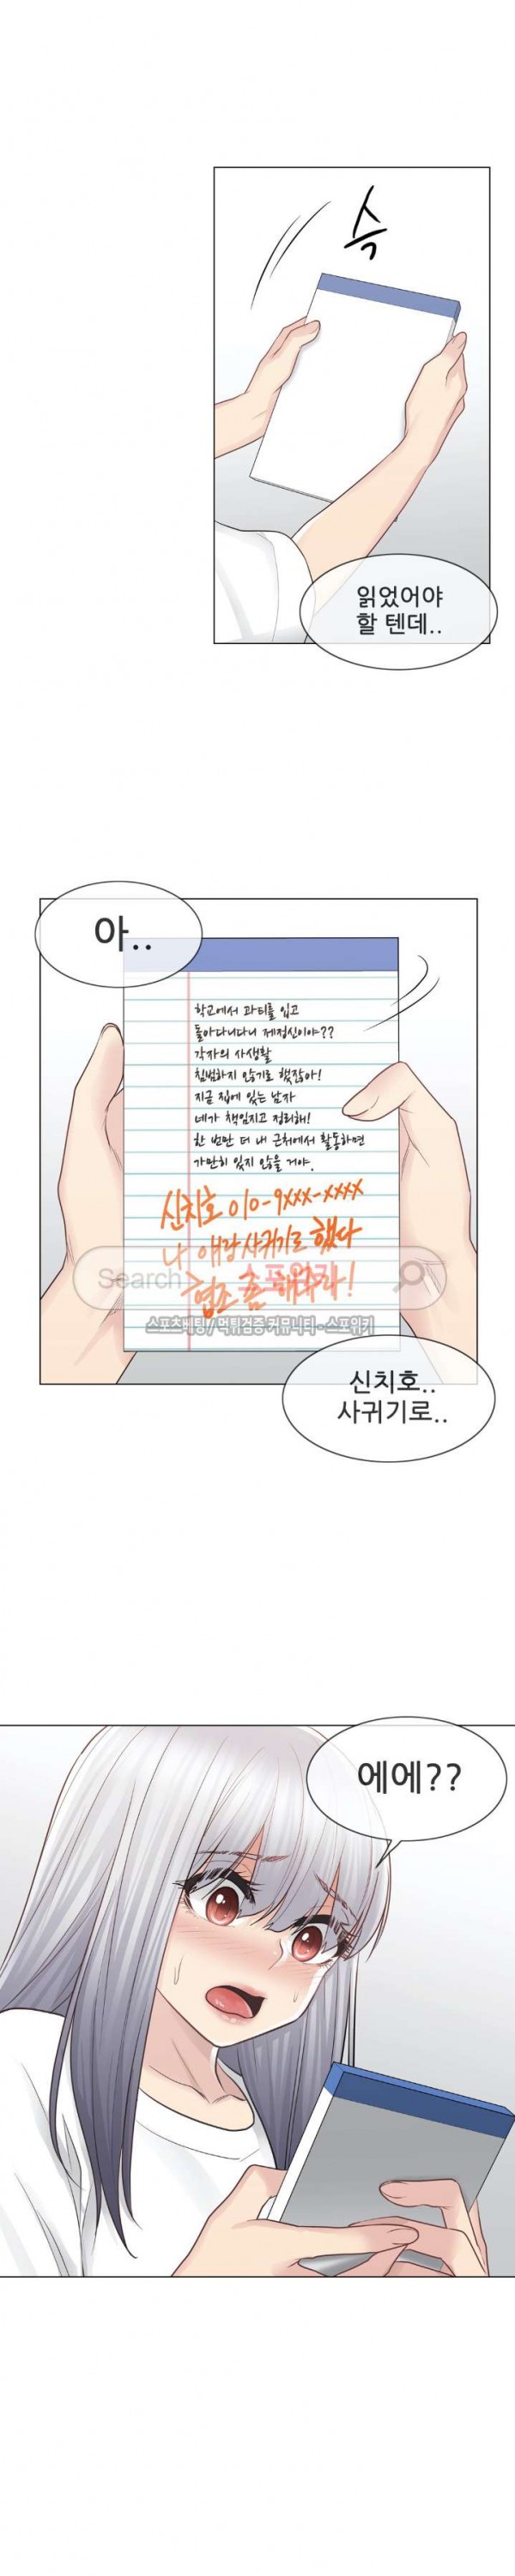 슥
읽었어야
할 텐데..
아..
학교에서 과티를 입고
돌아다니다니 제정신이야??
각자의 사생활
침범하지 않기로 했잖아!
지금 집에 있는 남자
네가 책임지고 정리해!
한 번만 더 내 근처에서 활동하면
가만히 있지 않을 거야.
신치호 010-9XXX-XXXX
나 얘랑 사귀기로 했다
협조 좀 해주라!
Search 스포위키
스포츠베팅 / 먹튀검증 커뮤니티 - 스포위키
신치호..
사귀기로..
에에??